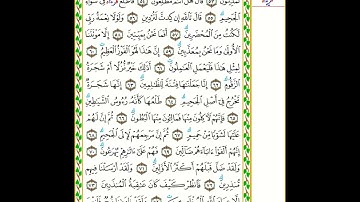 لَمَدِينُونَ ۝٥٣ قَالَ هَلْ أَنتُم مُّطَّلِعُونَ ۝٥٤ فَاطَّلَعَ فَرَءَاهُ فِي سَوَاءِ
الْجَحِيمِ ۝٥٥ قَالَ تَاللَّهِ إِن كِدتَّ لَتُرْدِينِ ۝٥٦ وَلَوْلَا نِعْمَةُ رَبِّي
لَكُنتُ مِنَ الْمُحْضَرِينَ ۝٥٧ أَفَمَا نَحْنُ بِمَيِّتِينَ ۝٥٨ إِلَّا مَوْتَتَنَا
الْأُولَىٰ وَمَا نَحْنُ بِمُعَذَّبِينَ ۝٥٩ إِنَّ هَٰذَا لَهُوَ الْفَوْزُ الْعَظِيمُ ۝٦٠
لِمِثْلِ هَٰذَا فَلْيَعْمَلِ الْعَامِلُونَ ۝٦١ أَذَٰلِكَ خَيْرٌ نُّزُلًا أَمْ شَجَرَةُ
الزَّقُّومِ ۝٦٢ إِنَّا جَعَلْنَاهَا فِتْنَةً لِّلظَّالِمِينَ ۝٦٣ إِنَّهَا شَجَرَةٌ
تَخْرُجُ فِي أَصْلِ الْجَحِيمِ ۝٦٤ طَلْعُهَا كَأَنَّهُ رُءُوسُ الشَّيَاطِينِ
۝٦٥ فَإِنَّهُمْ لَآكِلُونَ مِنْهَا فَمَالِئُونَ مِنْهَا الْبُطُونَ ۝٦٦ ثُمَّ إِنَّ لَهُمْ
عَلَيْهَا لَشَوْبًا مِّنْ حَمِيمٍ ۝٦٧ ثُمَّ إِنَّ مَرْجِعَهُمْ لَإِلَى الْجَحِيمِ ۝٦٨
إِنَّهُمْ أَلْفَوْا ءَابَاءَهُمْ ضَالِّينَ ۝٦٩ فَهُمْ عَلَىٰ ءَاثَارِهِمْ يُهْرَعُونَ ۝٧٠
وَلَقَدْ ضَلَّ قَبْلَهُمْ أَكْثَرُ الْأَوَّلِينَ ۝٧١ وَلَقَدْ أَرْسَلْنَا فِيهِم
مُّنذِرِينَ ۝٧٢ فَانظُرْ كَيْفَ كَانَ عَاقِبَةُ الْمُنذَرِينَ ۝٧٣